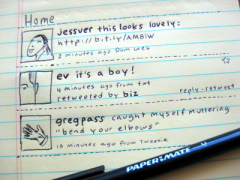 Home
Jessver this looks lovely:
http://bit.ly/AMBiW
2 minutes ago from web
ev it's a boy!
4 minutes ago from txt
retweeted by biz
reply · retweet
gregpass caught myself muttering
"bend your elbows"
10 minutes ago from Tweetie
PAPER MATE